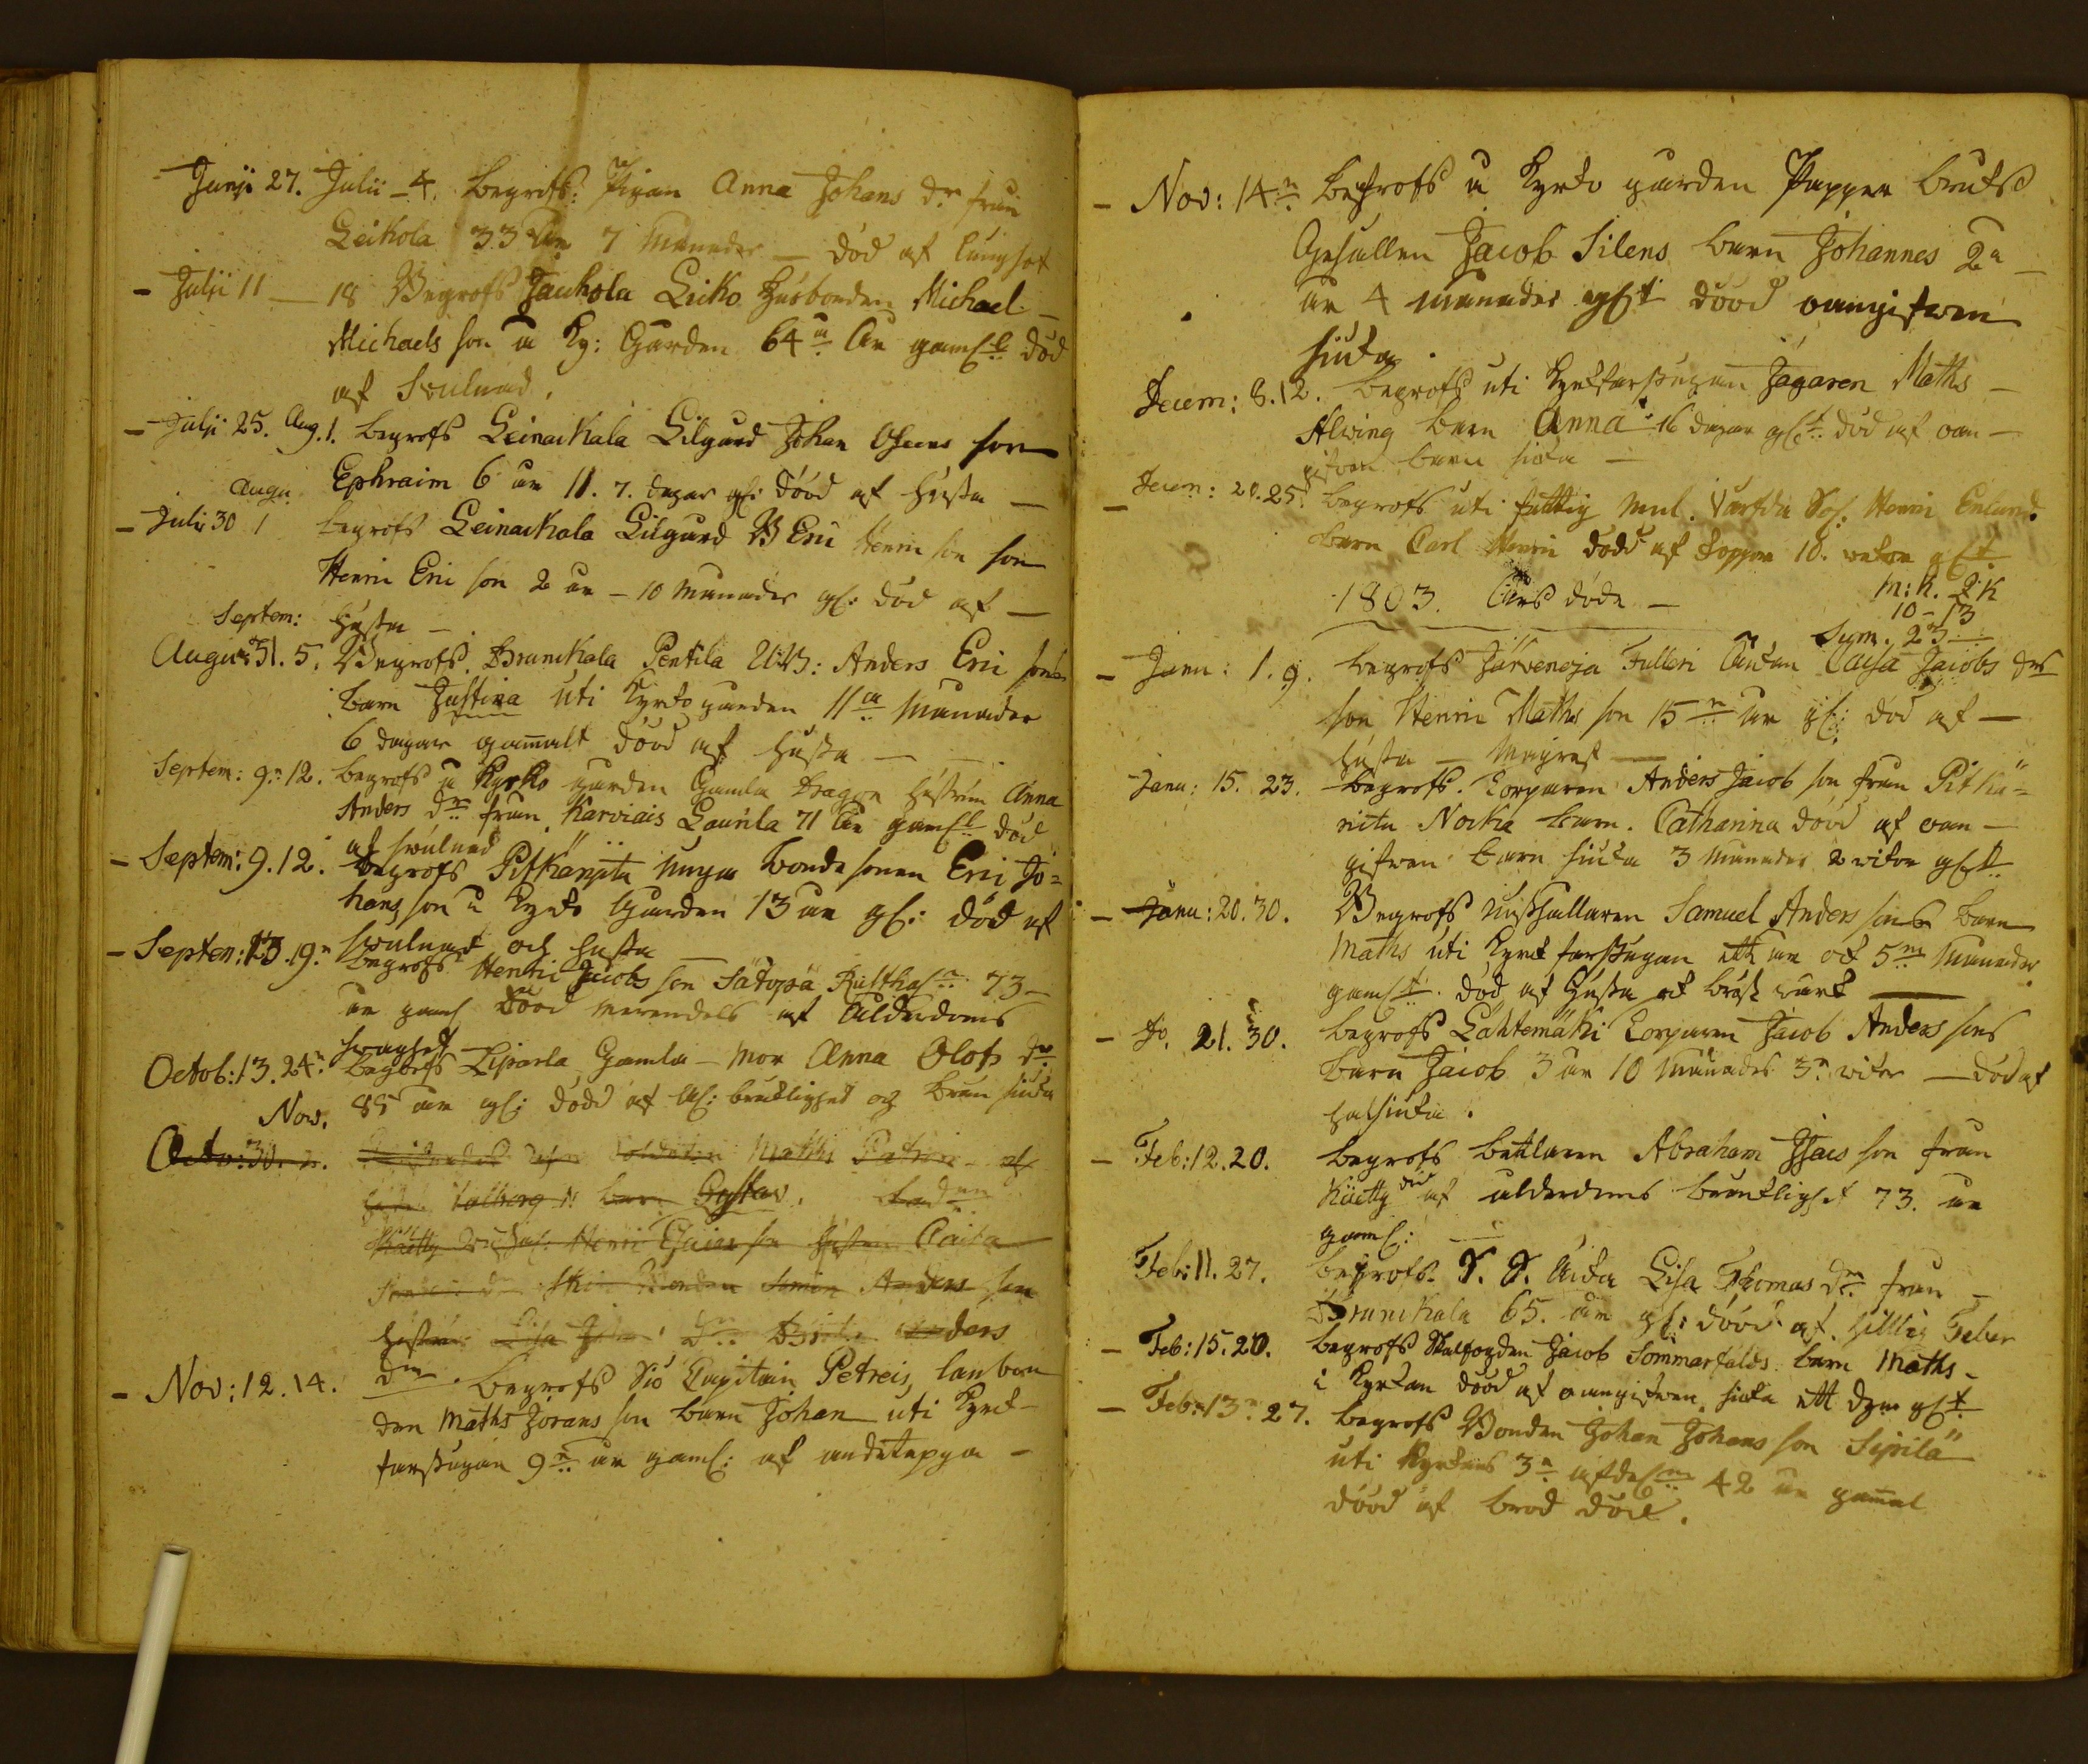 Junji 27. Julii - 4. begrofs: Pigan Anna Johans dr från
Leikola 33 år 7 månader — död af lungsot
- Julji 11 — 18 Begrofs Jaukola Leiko husbonden Michael
Michaels son å Ky: Gården 64 år gaml död
af Svulnad.
- Julji 25. Aug. 1. begrofs Leinackala Lilgård Johan son
Ephraim 6 år 11. 7. dagar gl: död af hosta —
augu
- Juli 30 1 begrofs Leinackala Lilgård B Eric Henric son son
Henric Eric son 2 år - 10 månader gl: död af —
Septem: hosta —
Augu: 31. 5. Begrofs. Brunckala Pentila Anders Eric sons
barn Justina uti Kyrko gården 11 månader
6 dagar gamalt död af hosta —
Septem: 9. 12. begrofs å Kyrko gården Gamla Dragon hustrun Anna
Anders dr från Karviais Laurila 71 år gaml död
af svulnad
- Septem: 9. 12. begrofs Pitkänjta unga bonde sonen Eric Jo=
hans son å Kyrko Gården 13 år gl: död af
svulnad och hosta
- Septem: 13. 19. begrofs Henric Jacobs son Sätopä Rusthol 73
år gaml död merendels af Ålderdoms
svaghet
Octob: 13. 24. begrofs Liparla Gamla - mor Anna Olofs dr
85 år gl: död af bräcklighet och barn siuka
Nov.
Octo: 30. Soldaten Matths Patron
barn Gustav.
Kätty Henric son hustru Caisa
Bonden Simon Anders son
hustru Lisa Anders
dr.
- Nov: 12. 14. begrofs Sio Capitain Petreis, lanbon
den Maths Jörans son barn Johan uti Kyrck-
farstugan 9 år gaml: af andetäppa -
- Nov: 14 begrofs å Kyrko gården Papper bruks
Gesällen Jacob Silens barn Johannes 2
år 4 månader gl död oangifven
siuka.
Decem: 8. 12. begrofs uti Kyrkfarstugan Jägaren Maths —
Alwing barn Anna 16 dagar gl död af oan —
gifven barn siuka —
- Decem: 20. 25. begrofs uti fattig Henric Enlund
barn Carl Henric död af koppor 10. wekor gl
1803. Års döde — m: k. Q: k
10 - 13
Sum. 23 —
- Janu: 1. 9. begrofs Järvenoja Fulleri Änkan Caisa Jacobs drs
son Henric Maths son 15 år gl: död af —
hosta —
Janu: 15. 23. begrofs. Torparen Anders Jacob son från Pitkä=
nitu Nocka barn. Catharina död af oan —
gifven barn siuka 3 månader 2 wekor gl
- Janu: 20. 30. Begrofs Samuel Anders sons barn
Maths uti Kyrck farstugan ett år och 5 månader
gaml. död af hosta och bröst wärk —
- Do. 21. 30. begrofs Lahtemäki Torparen Jacob Anders sons
barn Jacob 3 år 10 månader 3 wekor — död af
halsiuka.
- Feb: 12. 20. begrofs betlaren Abraham Isacs son från
Kätty död af ålderdoms bräcklighet 73. år
gaml:
Feb: 11. 27. begrofs. S. S. Änka Lisa Thomas dr från —
Brunckala 65. år gl: död af hittig Feber
- Feb: 15. 20. begrofs Jacob Sommarfälds barn Maths -
i Kyrkan död af oangifven, siuka ett dygn gl
- Feb: 13. 27. begrofs Bonden Johan Johans son Sipilä
uti Kyrkans 3 afdel 42 år gamal
död af bråd död.